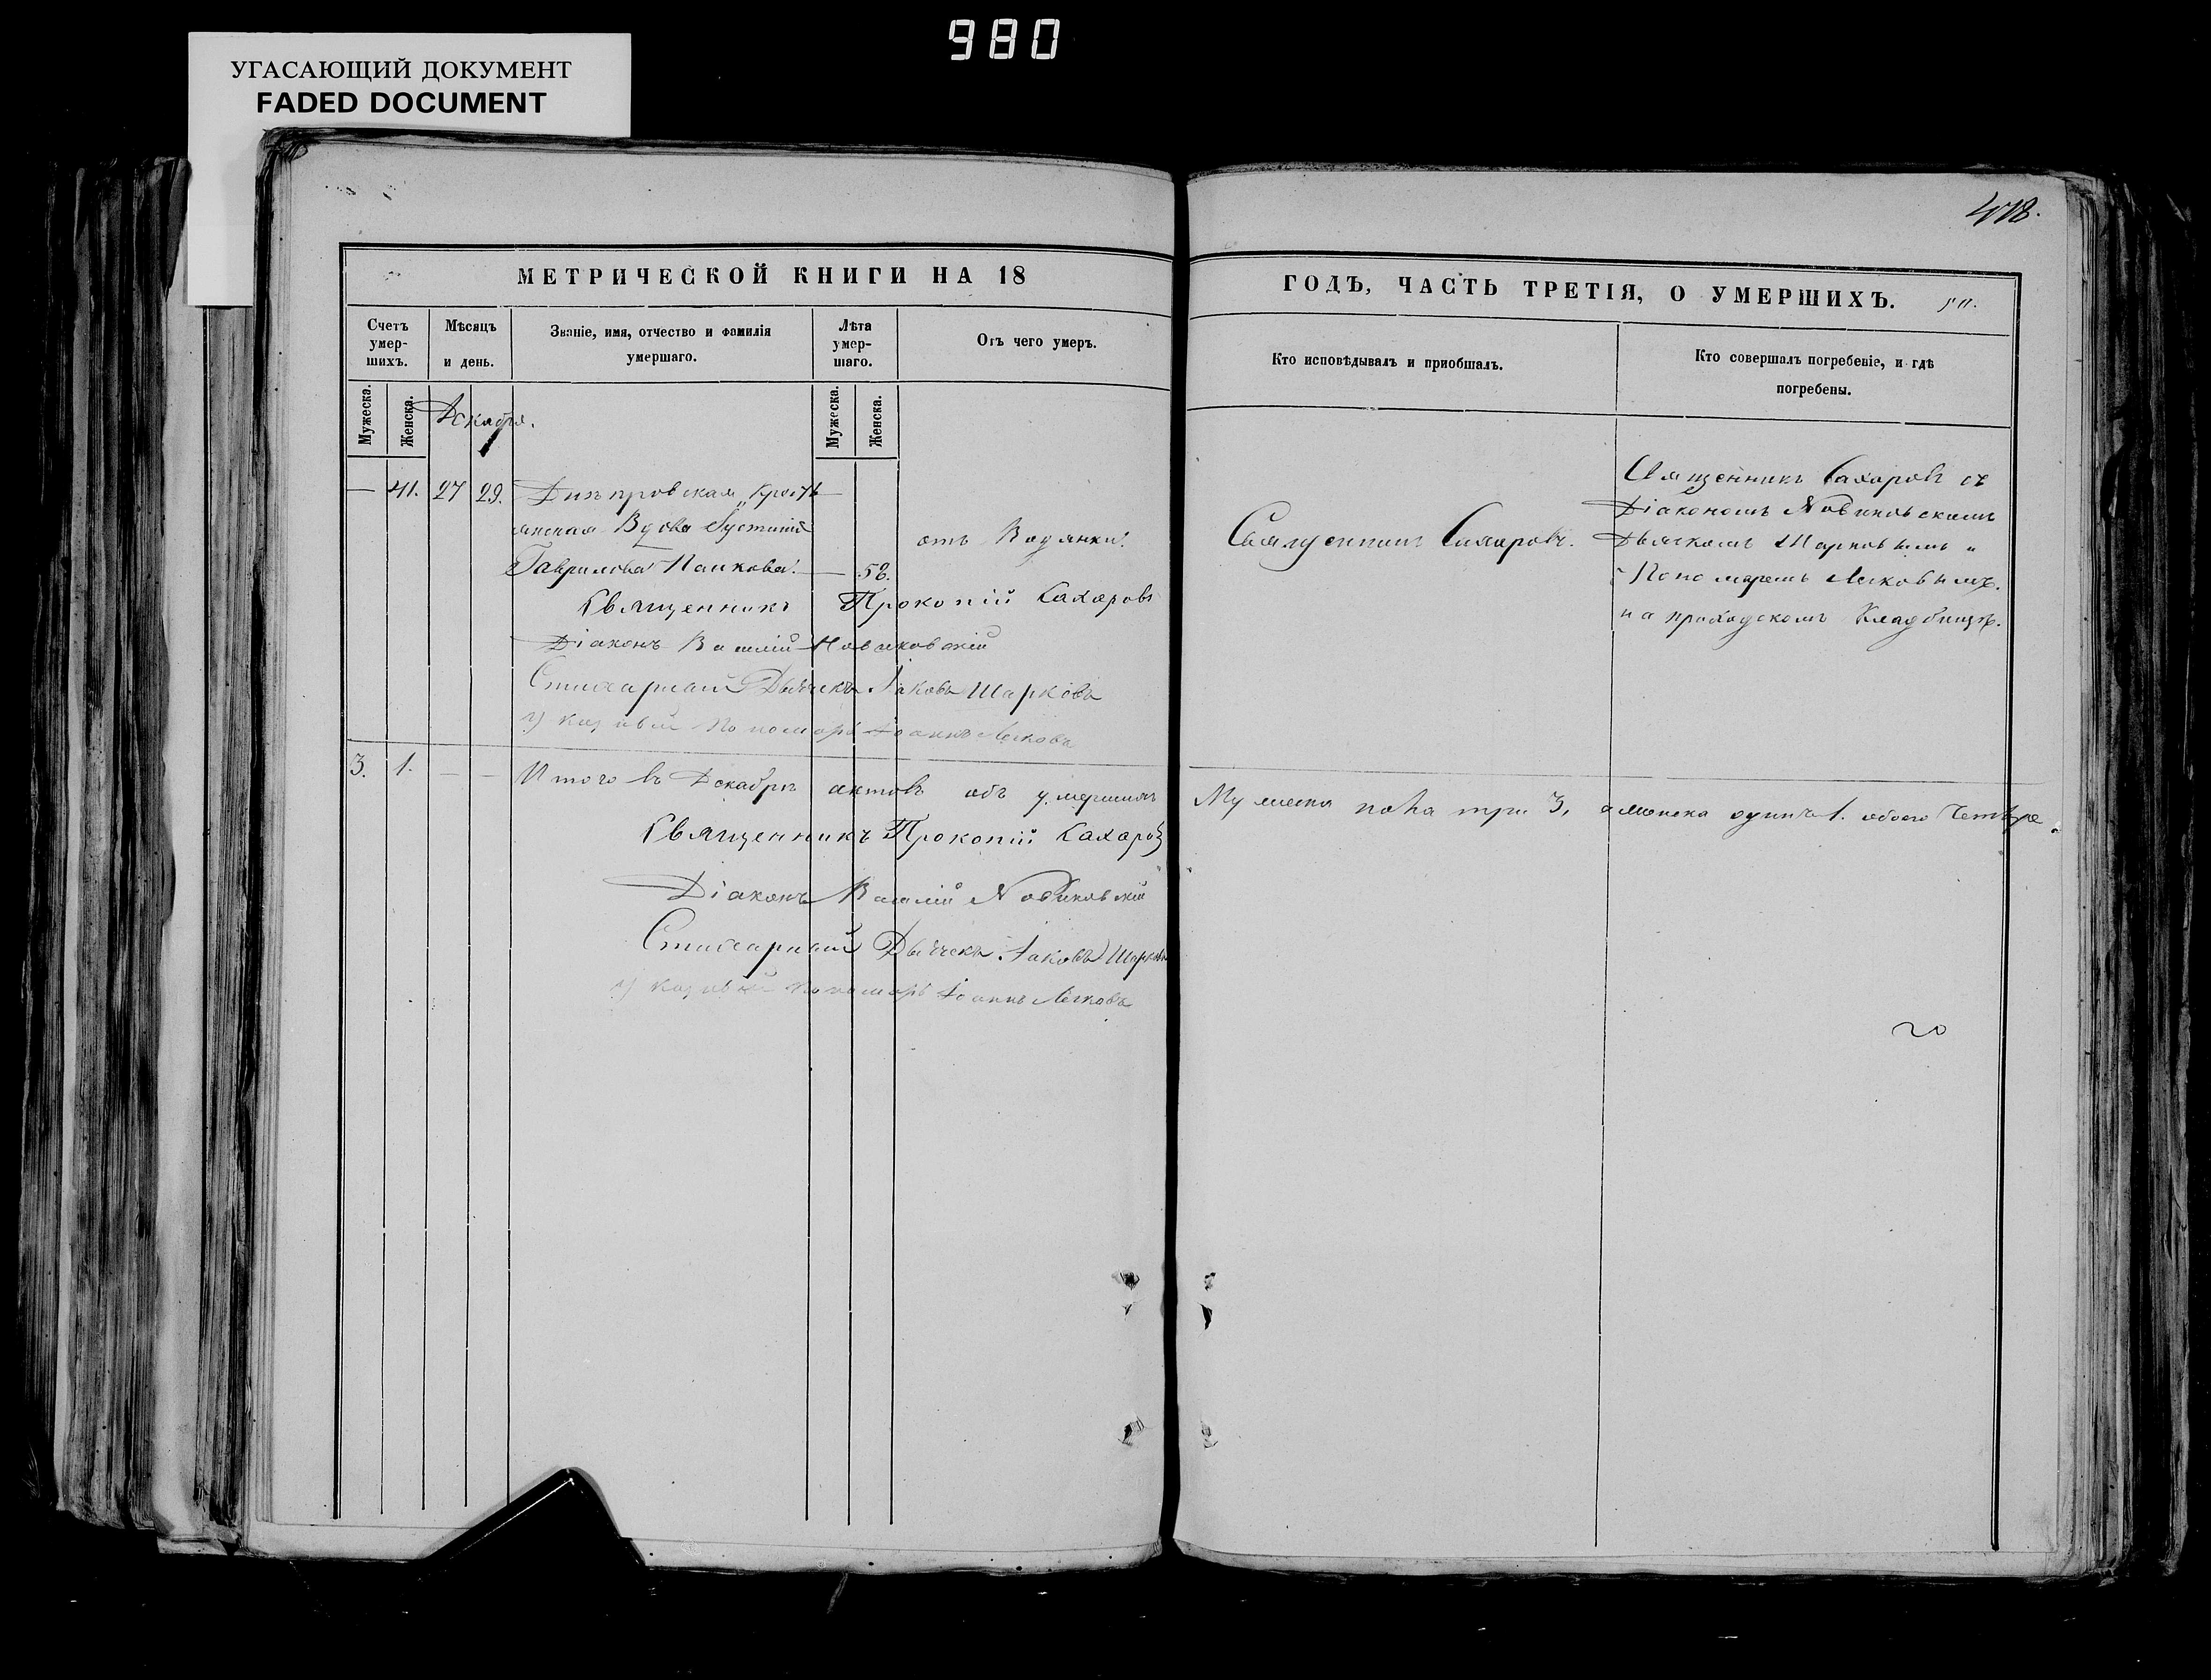 980
УГАСАЮЩИЙ ДОКУМЕНТ
FADED DOCUMENT
418.
МЕТРИЧЕСКОЙ КНИГИ НА 18
Счетъ умер-шихъ.
Мѣсяцъ и день.
Званіе, имя, отчество и фамилія умершаго.
Лѣта умер-шаго.
Отъ чего умеръ.
Мужеска.
Женска.
Мужеска.
Женска.
Декабрь.
— 41. 27 29. Днѣпровская Кресть
янская Вдова Іустинія
Гаврилова Панкова. — 58.
отъ Водянки.
Священникъ Прокопій Сахаровъ
Діаконъ Василій Новиковскій
Стихарный Дьячекъ Іаковъ Шарковъ
Пономарь Іоаннъ Лесковъ
3. 1. — — Итого въ Декабрѣ актовъ объ умершихъ
Священникъ Прокопій Сахаровъ
Діаконъ Василій Новиковскій
Стихарный Дьячекъ Іаковъ Шарковъ
Пономарь Іоаннъ Лесковъ
ГОДЪ, ЧАСТЬ ТРЕТІЯ, О УМЕРШИХЪ.
Кто исповѣдывалъ и приобшалъ.
Кто совершалъ погребеніе, и гдѣ погребены.
Священникъ Сахаровъ.
Священникъ Сахаровъ съ
Діакономъ Новиковскимъ
Дьячкомъ Шарковымъ и
Пономаремъ Лесковымъ.
на приходскомъ Кладбищѣ.
Мужеска пола три 3, а женска одинъ 1. обоего Четыре.